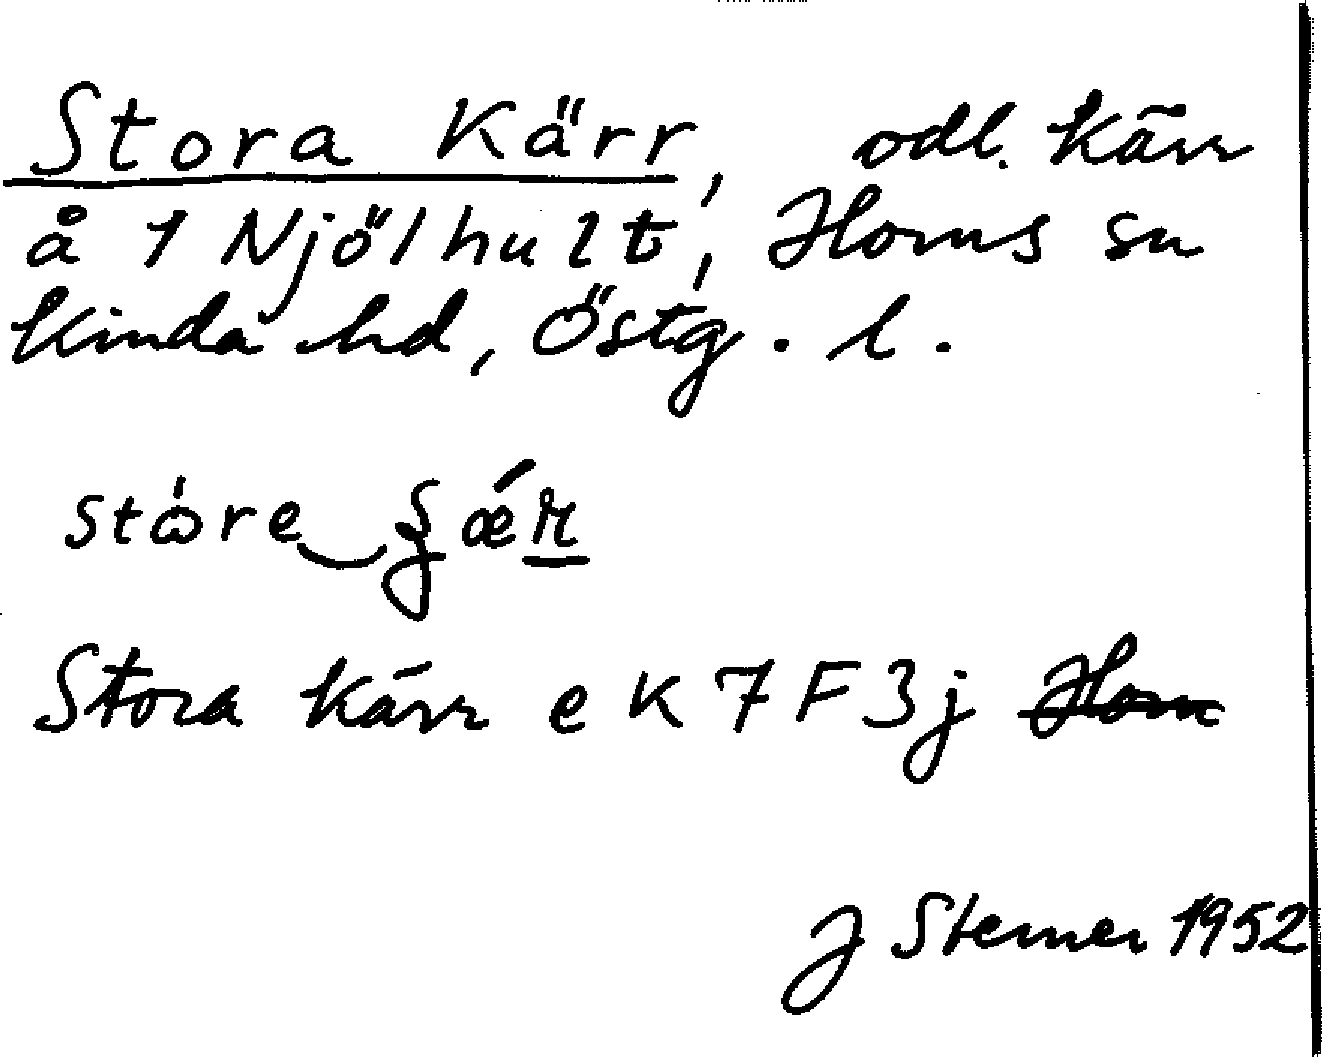 Stora Kärr, odl. kärr
å 1 Njölhult, Horns sn
Kinda hd, Östg. l.
Stora Kärr e K 7 F 3 j Horn
J Sterner 1952